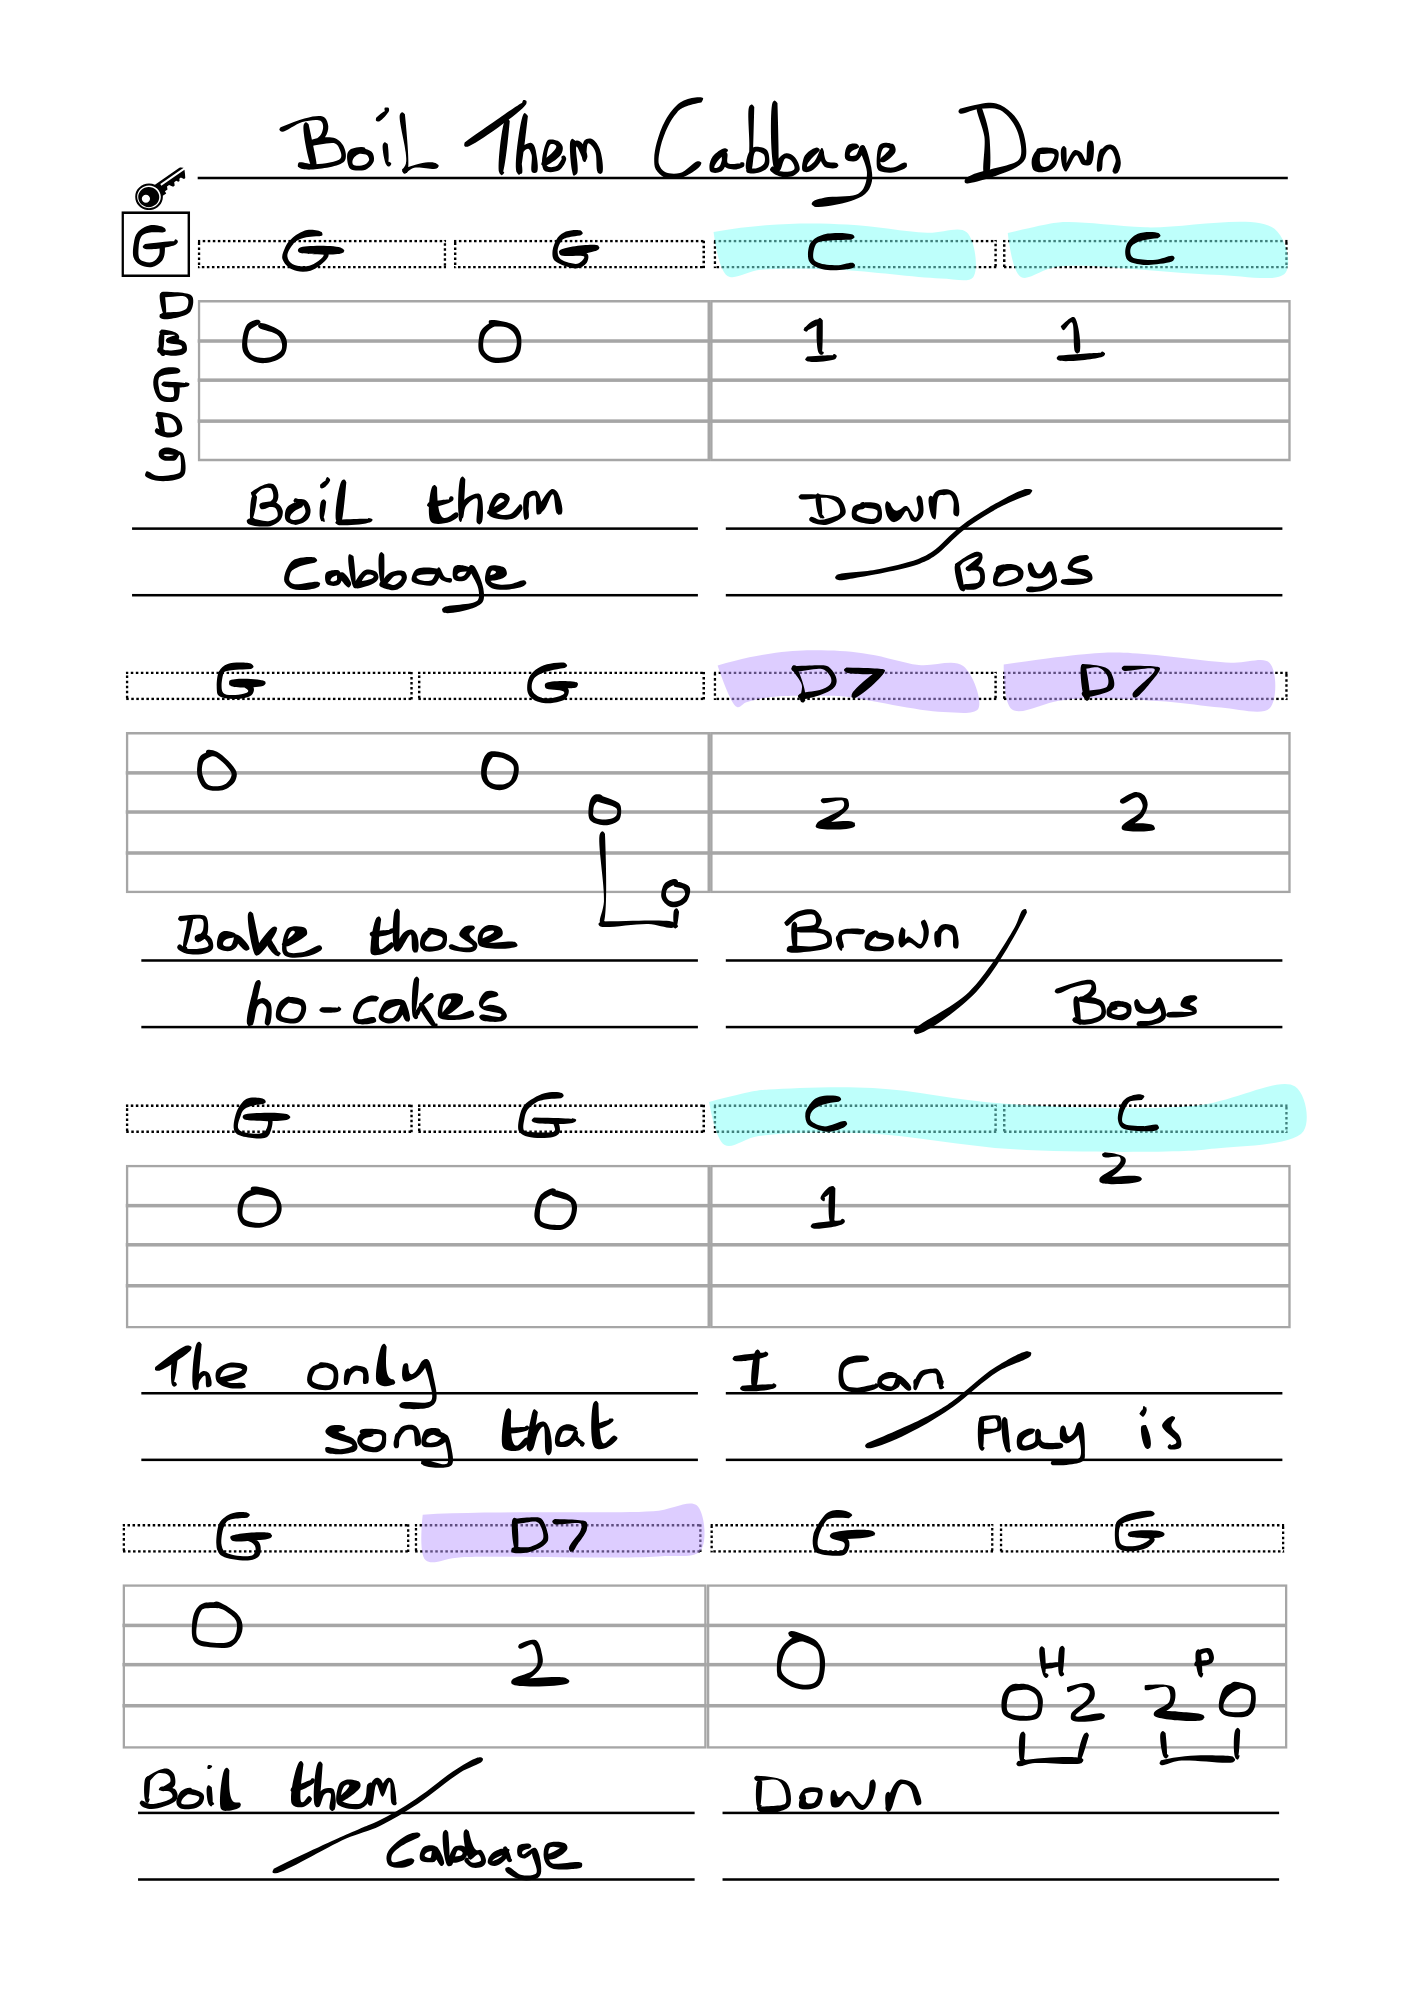 BoiL Them Cabbage Down
G G G C C
D
B 0 0 1 1
G
D
g
BoiL them Down
Cabbage Boys
G G D7 D7
0 0
0 2 2
0
Bake those Brown
ho-cakes Boys
G G C C
2
0 0 1
The only I Can
song that Play is
G D7 G G
0
2 0 H P
0 2 2 0
Boil them Down
Cabbage